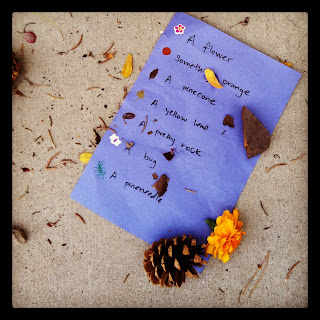 A flower
Something orange
A pinecone
A yellow leaf
A pretty rock
A bug
A pineneedle